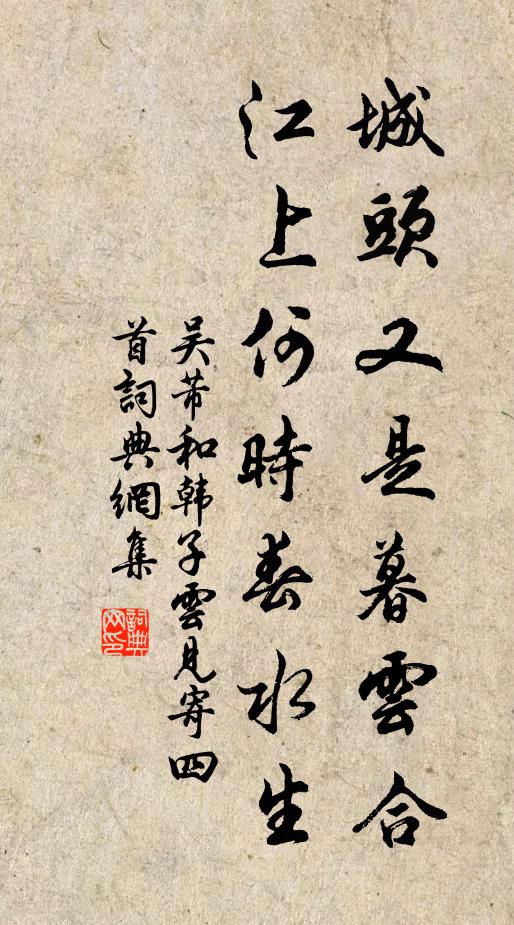 城頭又是暮雲合
江上何時春水生
吴芾和韩子雲見寄四
首詞典網集
詞典
网印